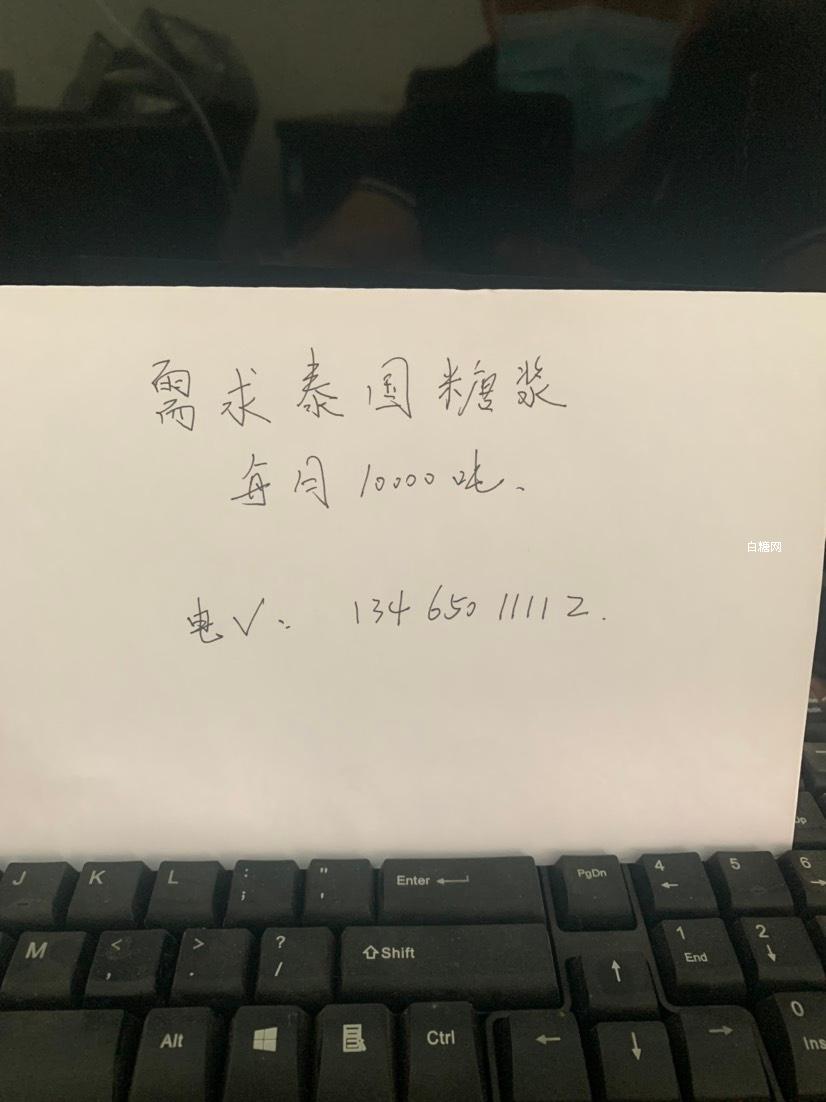 需求泰国糖浆
每月10000吨.
电V: 134 650 11112.
白糖网
J
K
L
:
;
"
'
Enter
PgDn
4
5
6
M
<
,
>
.
?
/
Shift
1
End
2
Alt
Ctrl
0
Ins